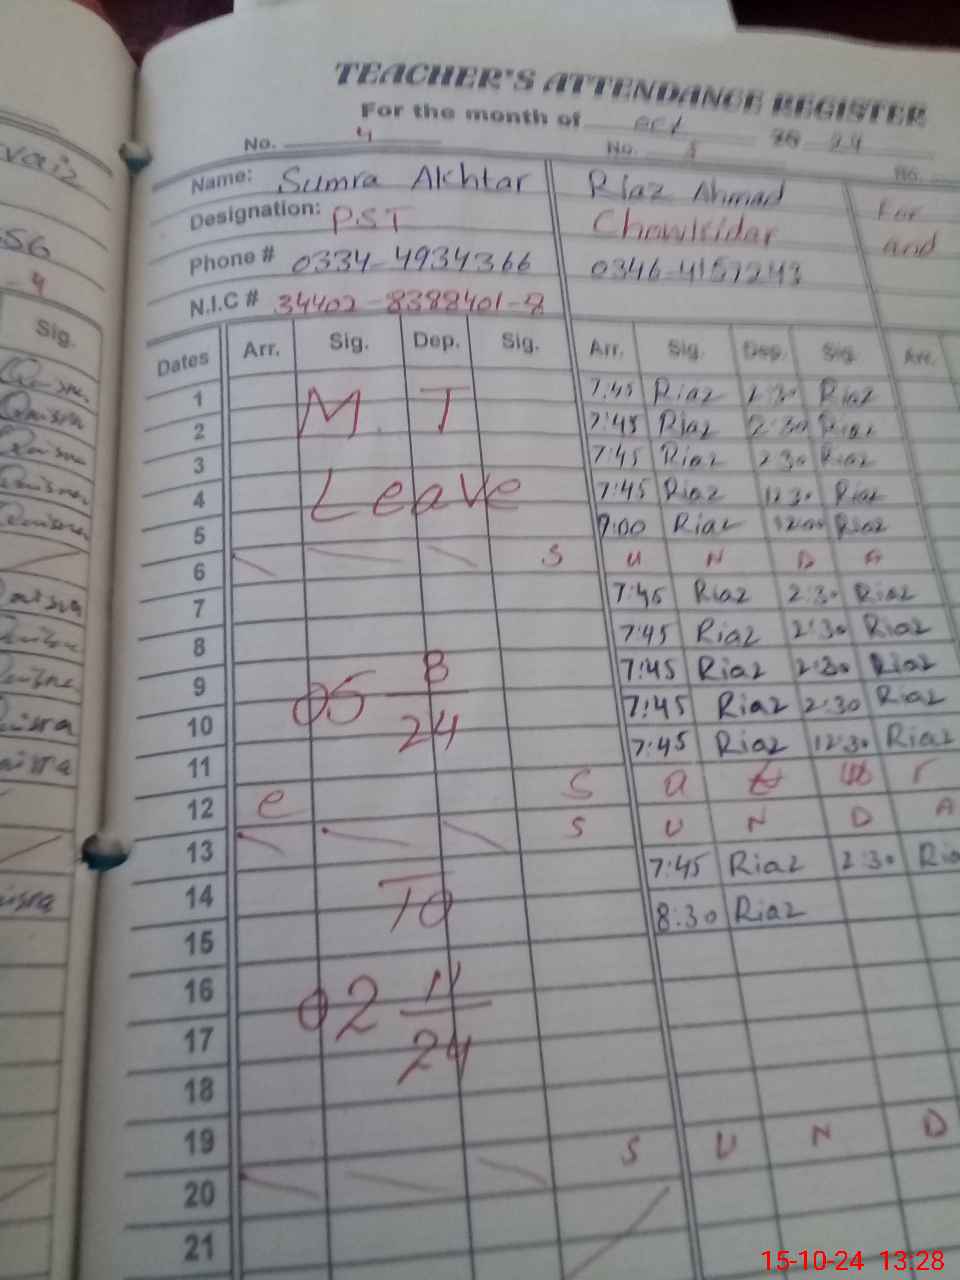 TEACHER'S ATTENDANCE REGISTER
For the month of oct 20 24
No. 4 No. 5 No.
Name: Sumra Akhtar Riaz Ahmad For
Designation: P.S.T Chowkidar and
Phone # 0334-4934366 0346-4157243
N.I.C # 34402-8388401-8
Sig.
Dates Arr. Sig. Dep. Sig. Arr. Sig. Dep. Sig. Arr.
1 M.T 7:45 Riaz 2:30 Riaz
2 7:45 Riaz 2:30 Riaz
3 7:45 Riaz 2:30 Riaz
4 Leave 7:45 Riaz 12:30 Riaz
5 7:00 Riaz 12:00 Riaz
6 S U N D A
7 7:45 Riaz 2:30 Riaz
8 7:45 Riaz 2:30 Riaz
9 05 8/24 7:45 Riaz 2:30 Riaz
10 7:45 Riaz 2:30 Riaz
11 7:45 Riaz 12:30 Riaz
12 e S a t u r
13 S U N D A
14 To 7:45 Riaz 2:30 Ria
15 8:30 Riaz
16 02 11/24
17
18
19
20 S U N D
21
15-10-24 13:28